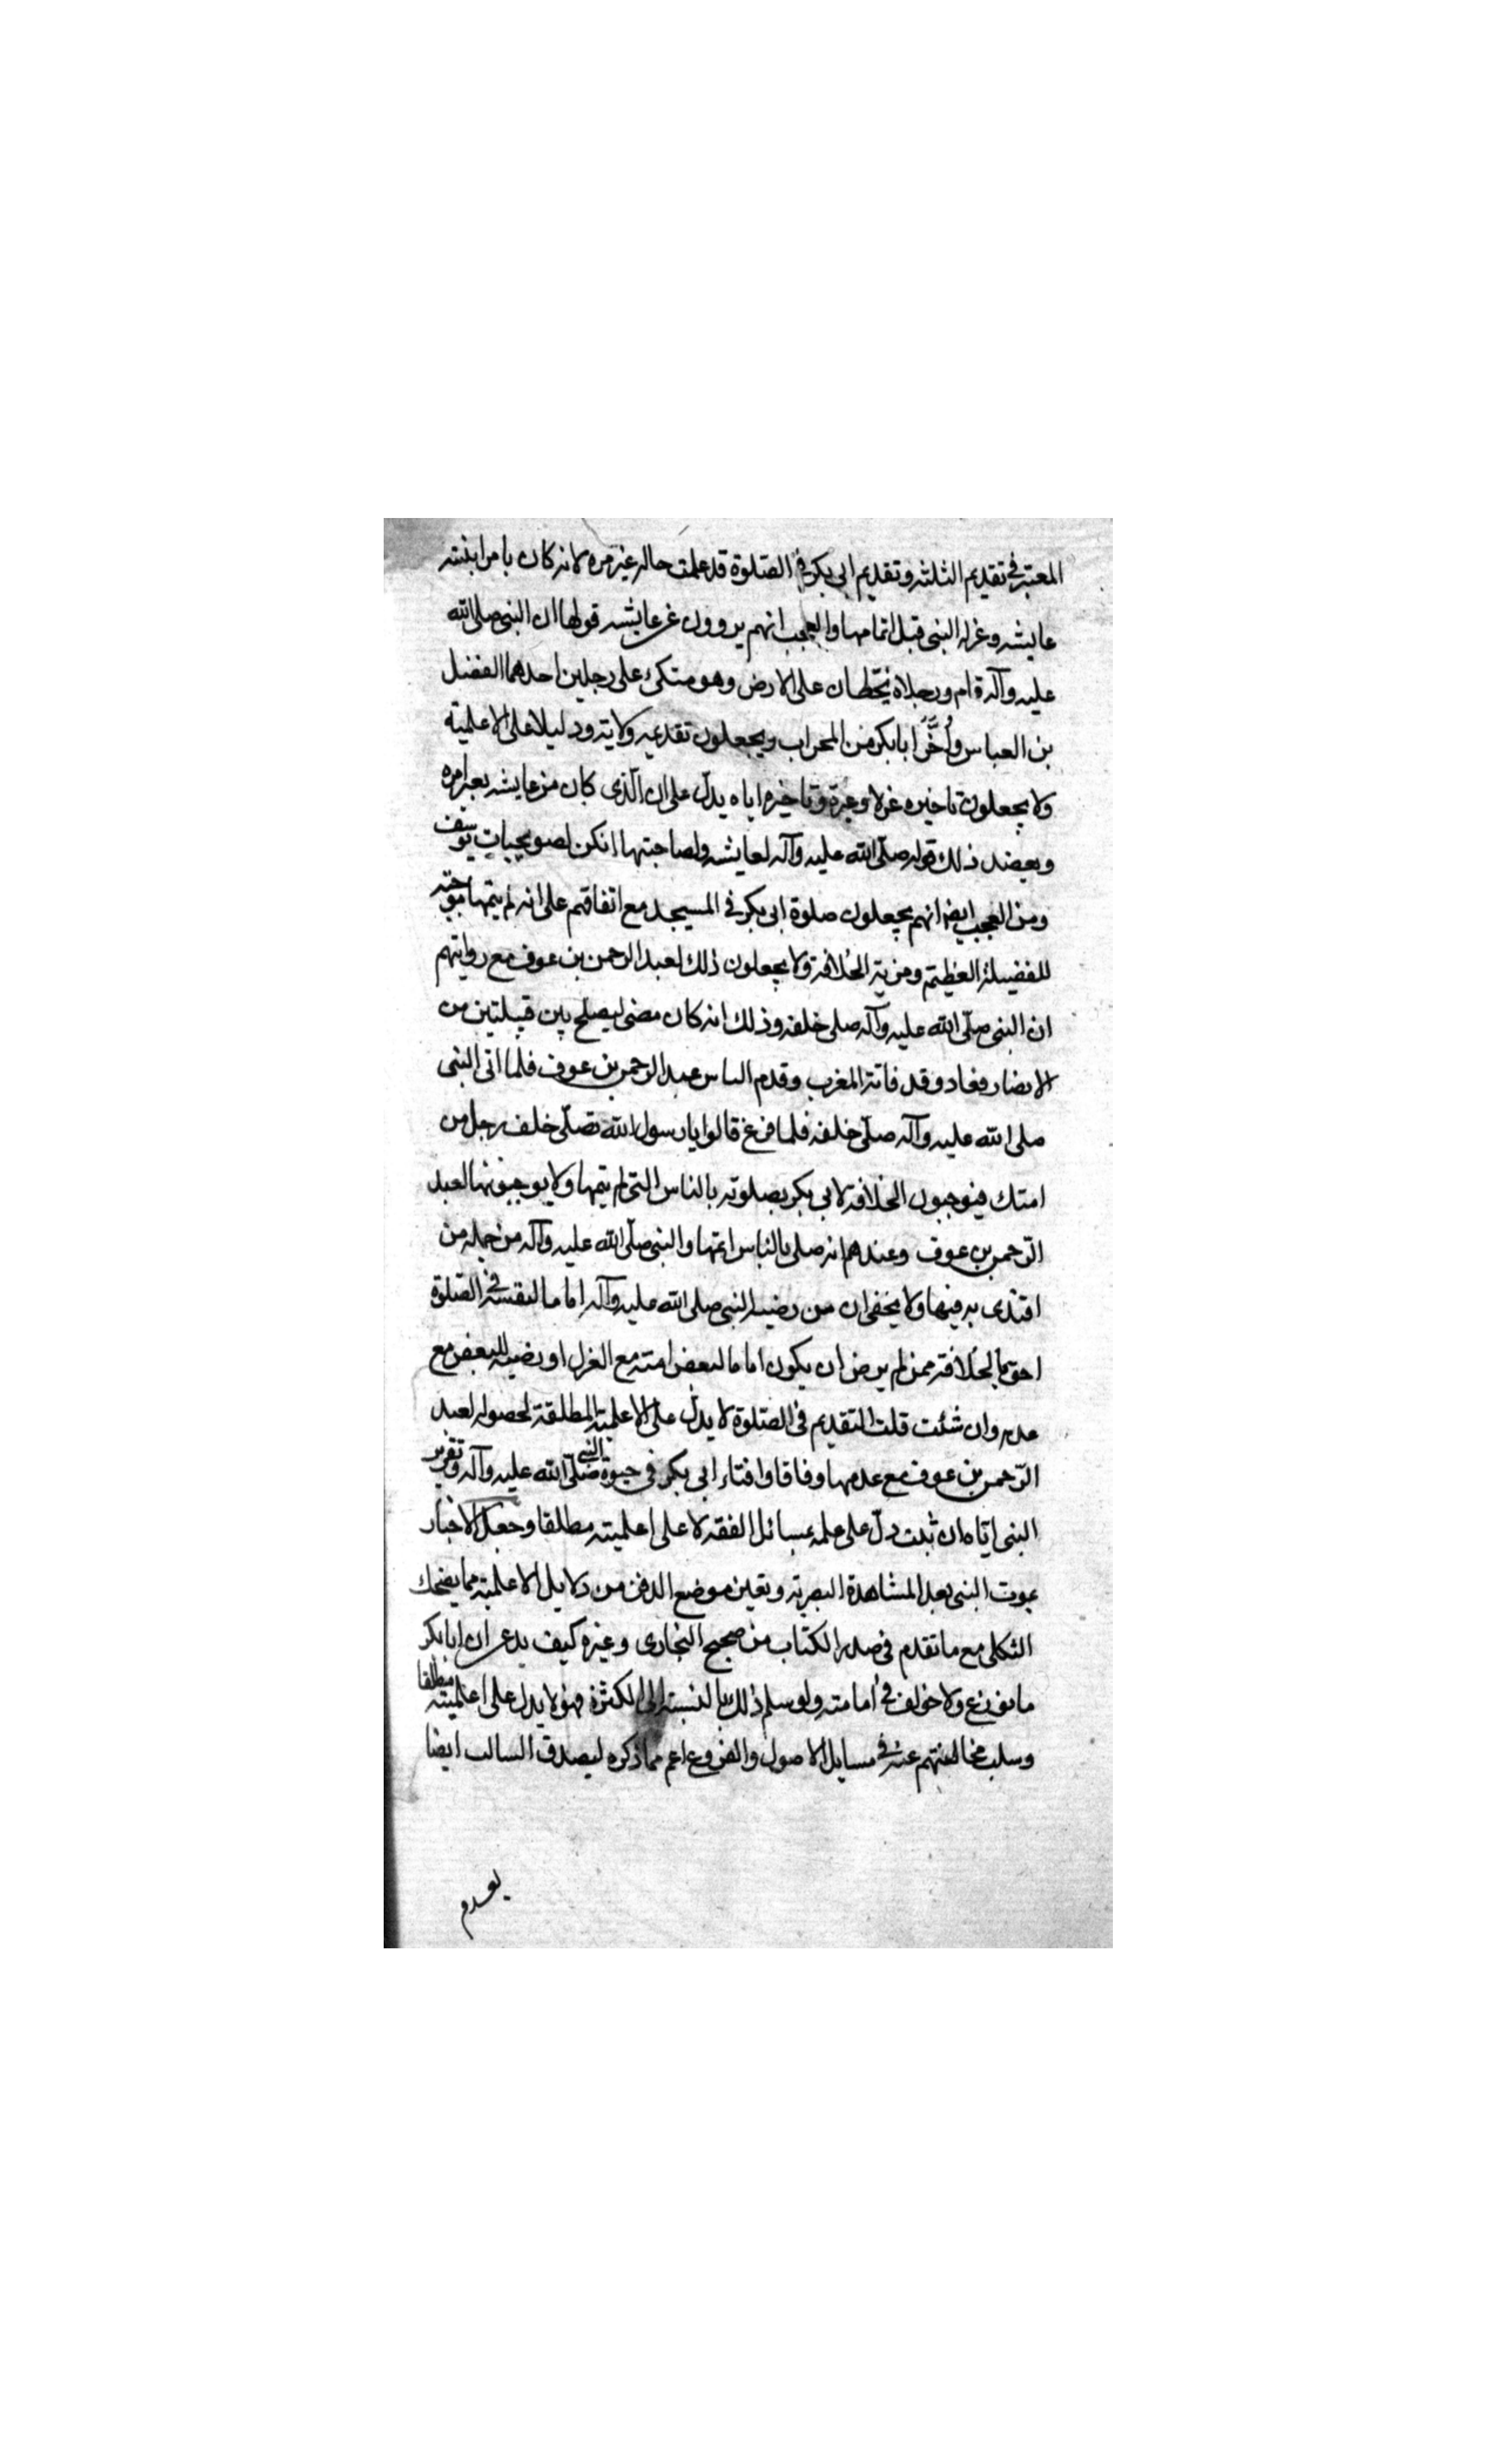 المعتبر في تقديم الثلثه وتقديم ابي بكر في الصّلوة قد علمت حاله غير مره لانه كان بامر ابنته
عايشه وعزله النبي قبل اتمامها والعجب انهم يروون عن عايشه قولها ان النبي صلى الله
عليه وآله قام ورجلاه يخّطان على الارض وهو متكئ على رجلين احدهما الفضل
بن العباس وأخَّر ابا بكر من المحراب ويجعلون تقديمه ولا يته ودليلا على الاعلمية
ولا يجعلون تاخيره عزلا وتاخيره اياه يدلّ على ان الّذي كان من عايشه بغير امره
ويعضد ذلك قوله صلّى الله عليه وآله لعايشه ولصاحبتها انكن لصويحبات يوسف
ومن العجب ايضا انهم يجعلون صلوة ابي بكر في المسجد مع اتفاقهم على انه لم يتمها موجبة
للفضيلة العظيمة ومزية الخلافة ولا يجعلون ذلك لعبد الرحمن بن عوف مع روايتهم
ان النبي صلّى الله عليه وآله صلى خلفه وذلك انه كان مضى ليصلح بين قبيلتين من
الانصار فعاد وقد فاتته المغرب وقدم الناس عبد الرحمن بن عوف فلما اتى النبي
صلى الله عليه وآله صلّى خلفه فلما فرغ قالوا يا رسول الله تصلّي خلف رجل من
امتك فيوجبون الخلافة لابي بكر بصلوته بالناس التي لم يتمها ولا يوجبونها لعبد
الرّحمن بن عوف وعندهم انه صلى بالناس اتمها والنبي صلّى الله عليه وآله من جملة من
اقتدى به فيها ولا يخفى ان من رضيه النبي صلى الله عليه وآله اماما لنفسه في الصّلوة
احق بالخلافة ممن لم يرض ان يكون اماما لبعض امته مع العزل او رضيه للبعض مع
عدمه وان شئت قلت التقديم في الصّلوة لا يدلّ على الاعلمية المطلقة لحصوله لعبد
الرّحمن بن عوف مع عدمها وفاقا وافتاء ابي بكر في حيوة النبي صلّى الله عليه وآله وتقرير
النبي ايّاه ان ثبت دلّ على علمه بمسائل الفقه لا على اعلميته مطلقا وجعل الاخبار
بموت النبي بعد المشاهدة البصرية وتعين موضع الدفن من دلايل الاعلمية مما يضحك
الثكلى مع ما تقدم في صدر الكتاب من صحيح البخاري وغيره كيف يدعى ان ابا بكر
ما نوزع ولا خولف في امامته ولو سلم ذلك بالنسبة الى الكثرة فهو لا يدل على اعلميته مطلقا
وسلب مخالفتهم عنه في مسايل الاصول والفروع اعم مما ذكره ليصدق السالب ايضا